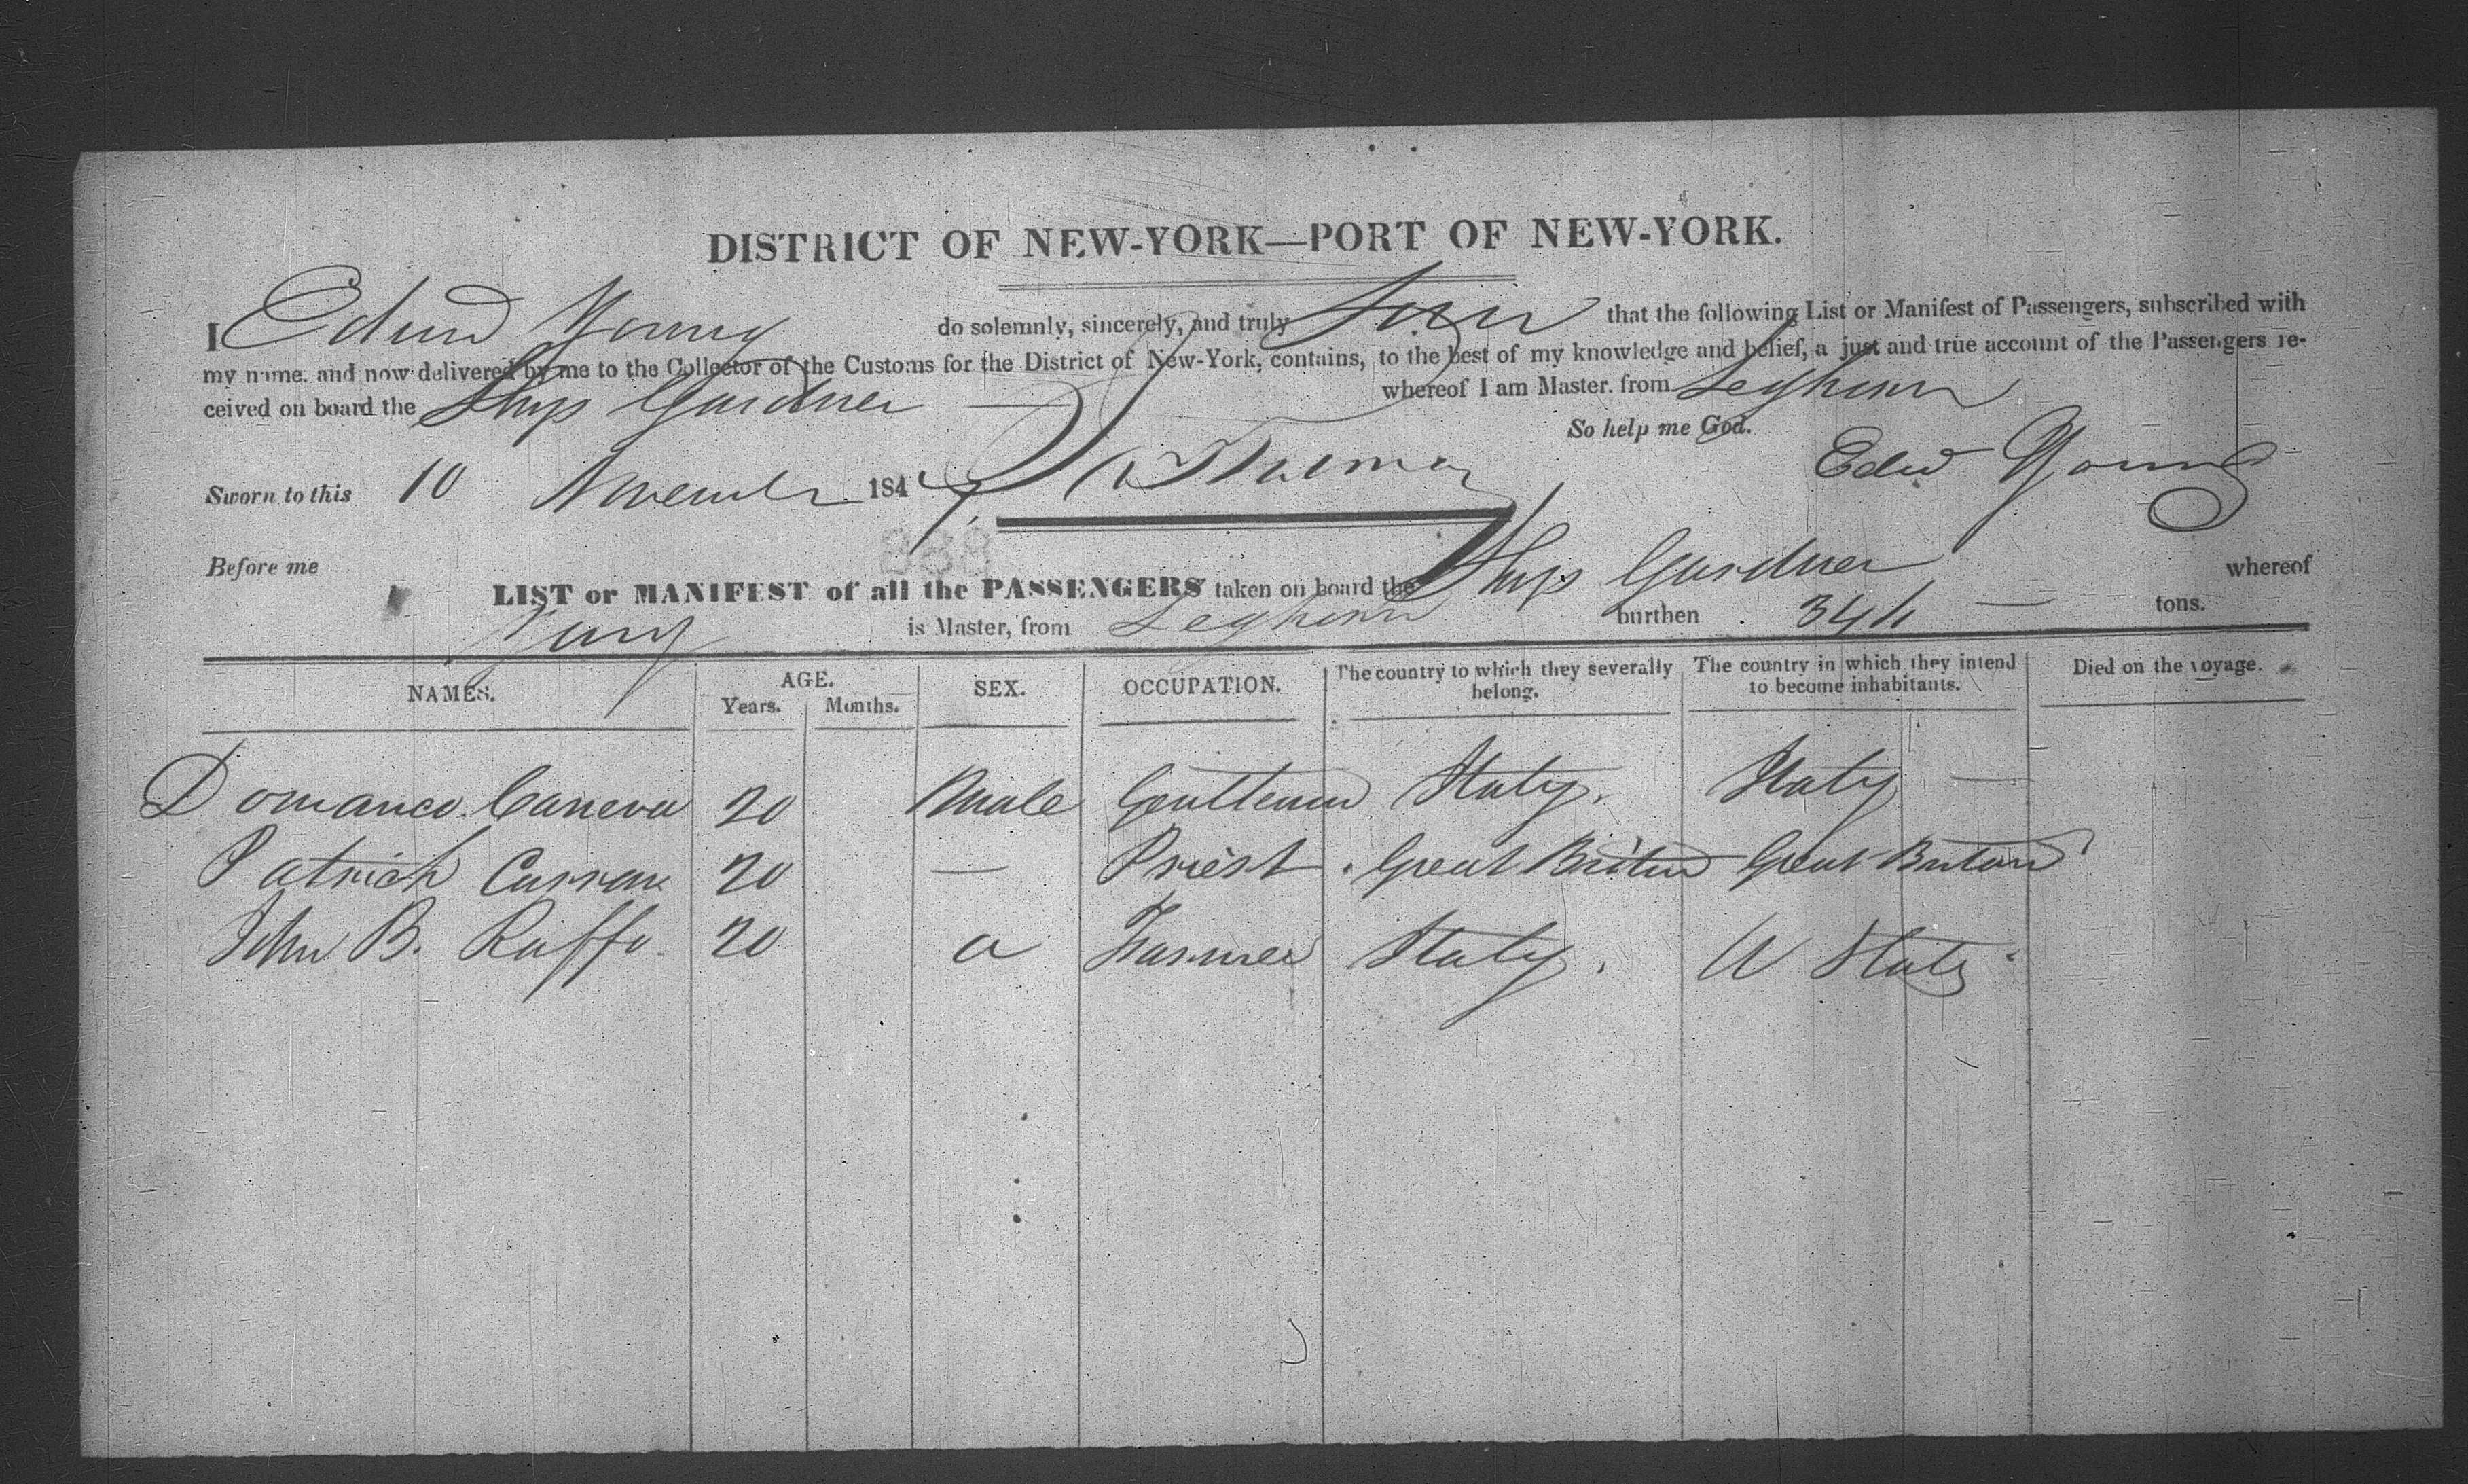 DISTRICT OF NEW-YORK—PORT OF NEW-YORK.
I Edwd Young do solemnly, sincerely, and truly that the following List or Manifest of Passengers, subscribed with
my name, and now delivered by me to the Collector of the Customs for the District of New-York, contains, to the best of my knowledge and belief, a just and true account of the Passengers re-
ceived on board the Ship Gardner whereof I am Master, from Leghorn
So help me God.
Sworn to this 10 November 184 Edw Young
Before me
888
LIST or MANIFEST of all the PASSENGERS taken on board the Ship Gardner whereof
Yung is Master, from Leghorn burthen tons.
NAMES. AGE. Years. Months. SEX. OCCUPATION. The country to which they severally belong. The country in which they intend to become inhabitants. Died on the voyage.
Domanco Caneva 20 Male Gentleman Italy. Italy —
Patrick Curran 20 — Priest Great Britain Great Britain
John B. Ruffo 20 a Farmer Italy. U States